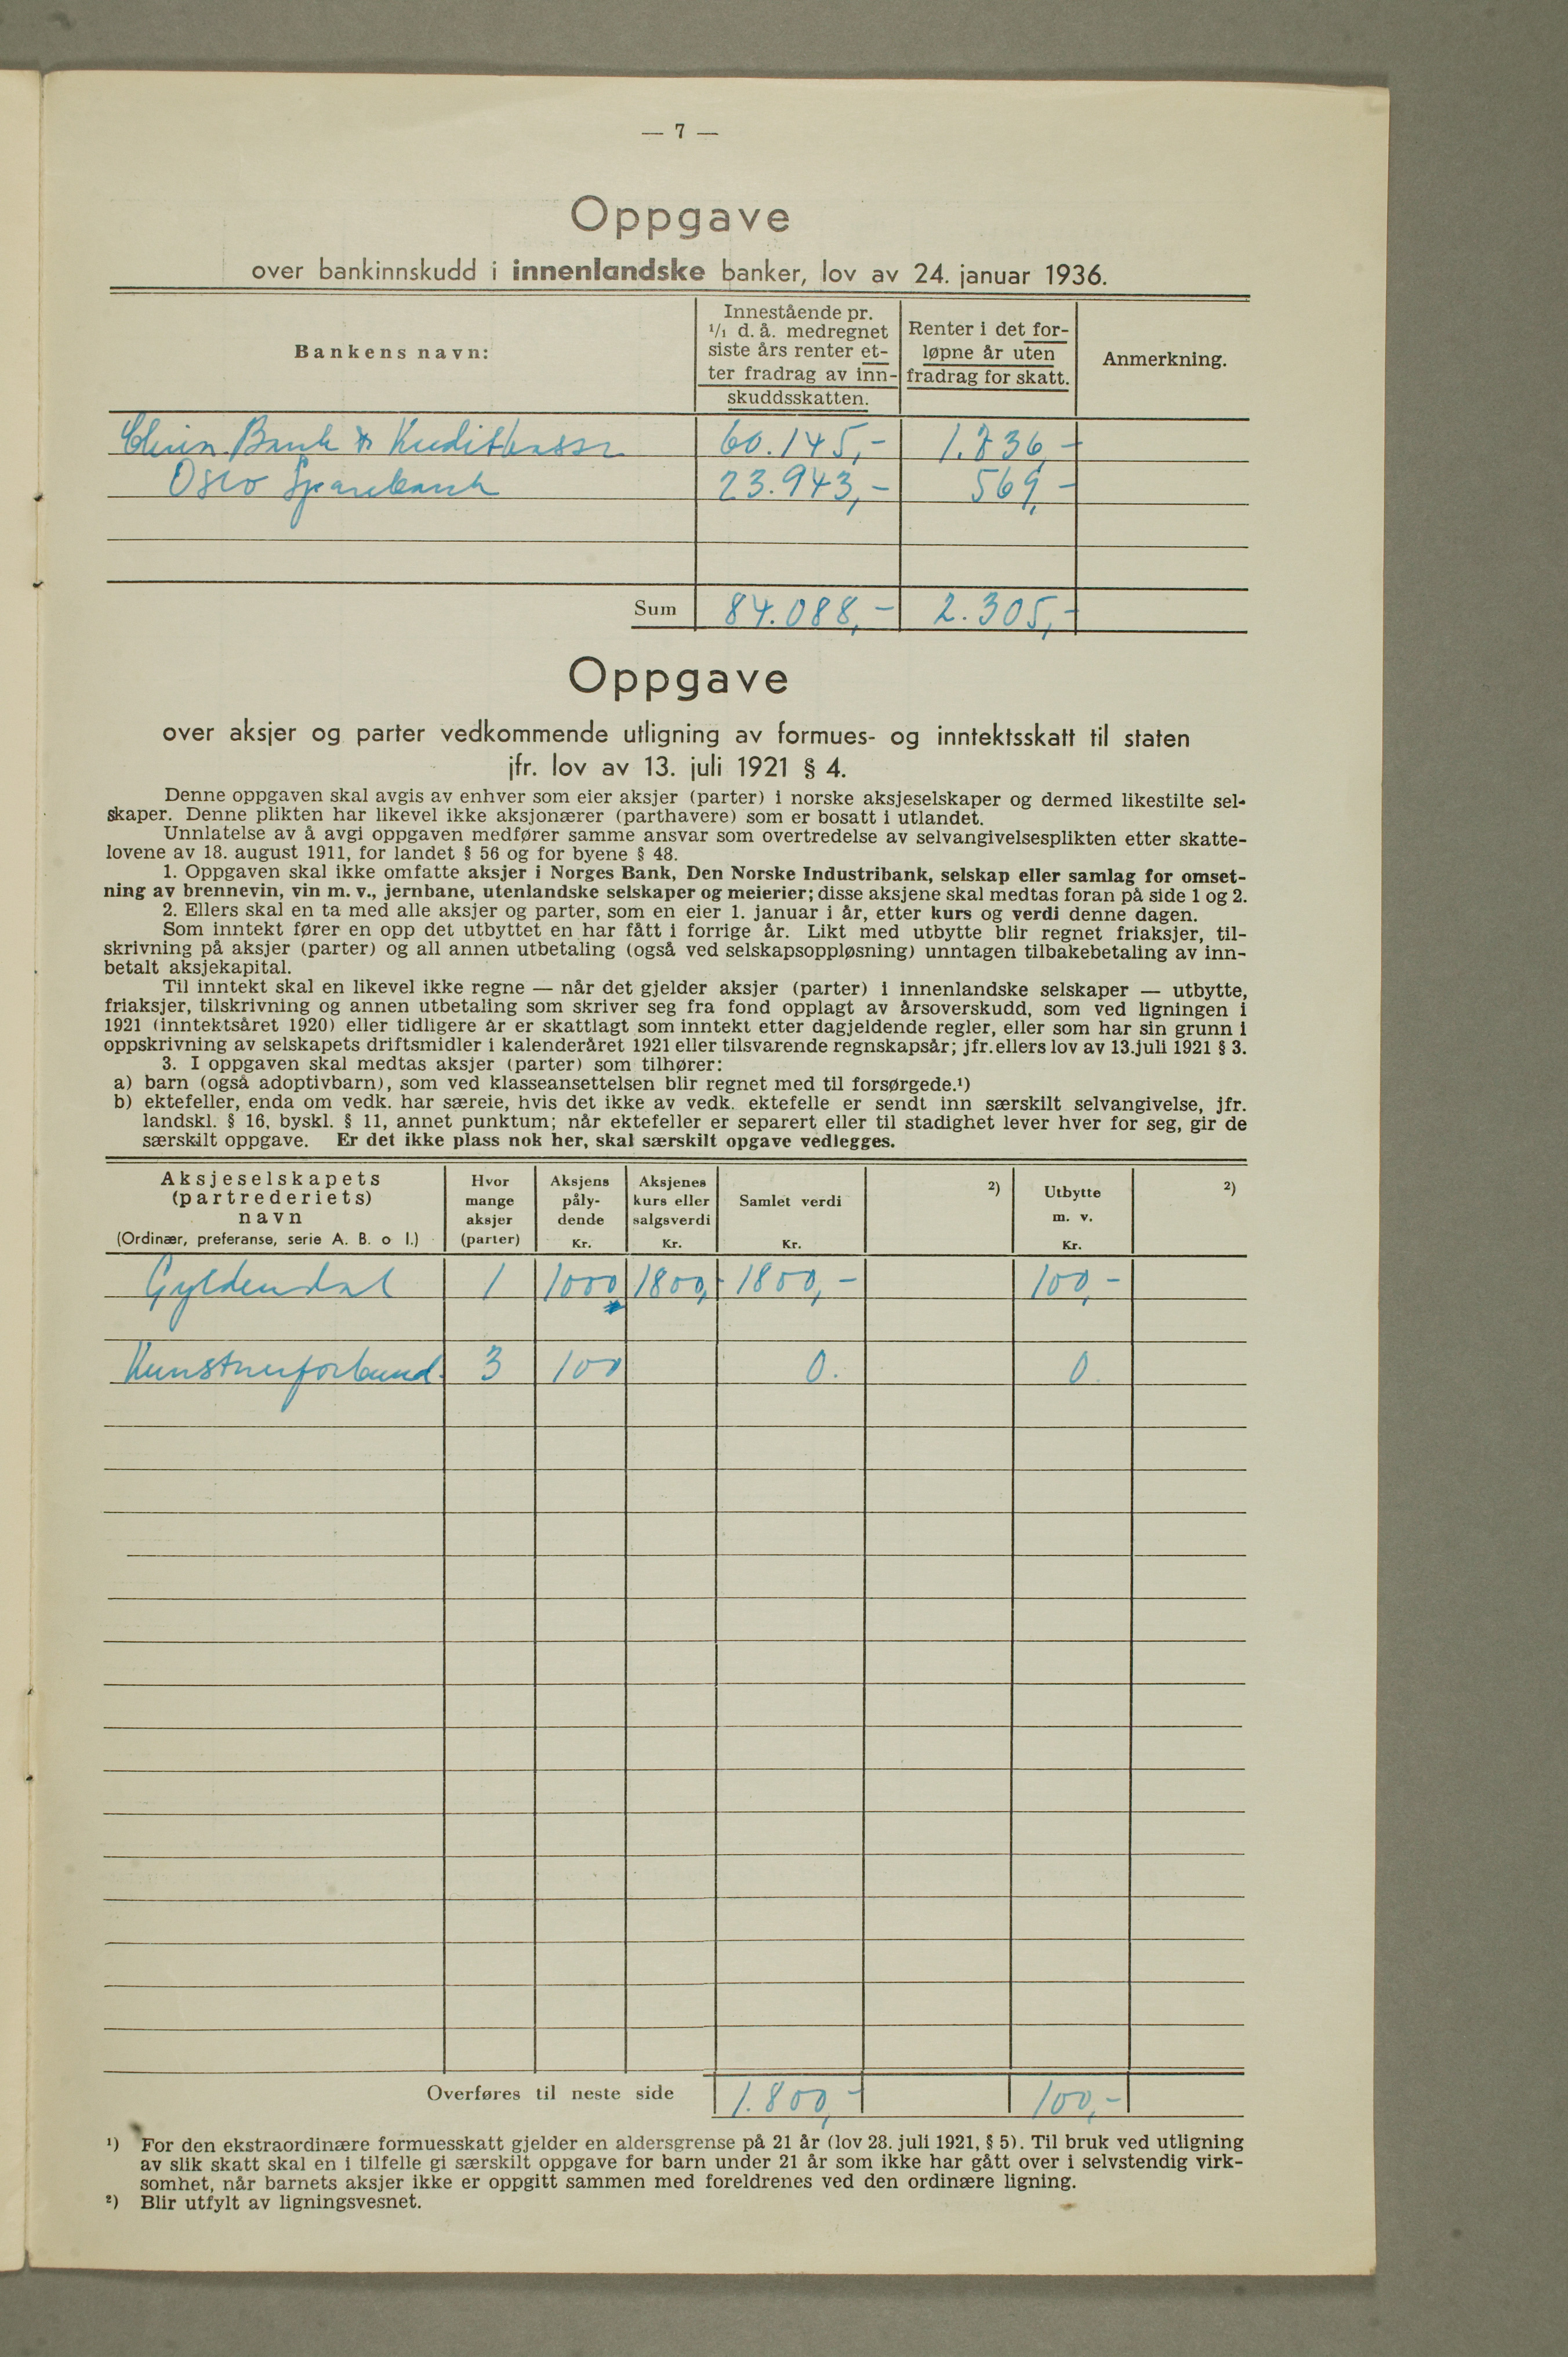 — 7 —
Oppgave
over bankinnskudd i innenlandske banker, lov av 24. januar 1936.
Bankens navn:
Innestående pr.
¹/₁ d. å. medregnet
siste års renter et-
ter fradrag av inn-
skuddsskatten.
Renter i det for-
løpne år uten
fradrag for skatt.
Anmerkning.
Chria. Bank & Kreditkasse 60.145,- 1.736,-
Oslo Sparebank 23.943,- 569,-
Sum 84.088,- 2.305,-
Oppgave
over aksjer og parter vedkommende utligning av formues- og inntektsskatt til staten
jfr. lov av 13. juli 1921 § 4.
Denne oppgaven skal avgis av enhver som eier aksjer (parter) i norske aksjeselskaper og dermed likestilte sel-
skaper. Denne plikten har likevel ikke aksjonærer (parthavere) som er bosatt i utlandet.
Unnlatelse av å avgi oppgaven medfører samme ansvar som overtredelse av selvangivelsesplikten etter skatte-
lovene av 18. august 1911, for landet § 56 og for byene § 48.
1. Oppgaven skal ikke omfatte aksjer i Norges Bank, Den Norske Industribank, selskap eller samlag for omset-
ning av brennevin, vin m. v., jernbane, utenlandske selskaper og meierier; disse aksjene skal medtas foran på side 1 og 2.
2. Ellers skal en ta med alle aksjer og parter, som en eier 1. januar i år, etter kurs og verdi denne dagen.
Som inntekt fører en opp det utbyttet en har fått i forrige år. Likt med utbytte blir regnet friaksjer, til-
skrivning på aksjer (parter) og all annen utbetaling (også ved selskapsoppløsning) unntagen tilbakebetaling av inn-
betalt aksjekapital.
Til inntekt skal en likevel ikke regne — når det gjelder aksjer (parter) i innenlandske selskaper — utbytte,
friaksjer, tilskrivning og annen utbetaling som skriver seg fra fond opplagt av årsoverskudd, som ved ligningen i
1921 (inntektsåret 1920) eller tidligere år er skattlagt som inntekt etter dagjeldende regler, eller som har sin grunn i
oppskrivning av selskapets driftsmidler i kalenderåret 1921 eller tilsvarende regnskapsår; jfr. ellers lov av 13. juli 1921 § 3.
3. I oppgaven skal medtas aksjer (parter) som tilhører:
a) barn (også adoptivbarn), som ved klasseansettelsen blir regnet med til forsørgede.¹)
b) ektefeller, enda om vedk. har særeie, hvis det ikke av vedk. ektefelle er sendt inn særskilt selvangivelse, jfr.
landskl. § 16, byskl. § 11, annet punktum; når ektefeller er separert eller til stadighet lever hver for seg, gir de
særskilt oppgave. Er det ikke plass nok her, skal særskilt opgave vedlegges.
Aksjeselskapets
(partrederiets)
navn
(Ordinær, preferanse, serie A. B. o l.)
Hvor
mange
aksjer
(parter)
Aksjens
påly-
dende
Kr.
Aksjenes
kurs eller
salgsverdi
Kr.
Samlet verdi
Kr.
²)
Utbytte
m. v.
Kr.
²)
Gyldendal 1 1000, 1800,- 1800,- 100,-
Kunstnerforbund. 3 100 0. 0.
Overføres til neste side 1.800,- 100,-
¹) For den ekstraordinære formuesskatt gjelder en aldersgrense på 21 år (lov 28. juli 1921, § 5). Til bruk ved utligning
av slik skatt skal en i tilfelle gi særskilt oppgave for barn under 21 år som ikke har gått over i selvstendig virk-
somhet, når barnets aksjer ikke er oppgitt sammen med foreldrenes ved den ordinære ligning.
²) Blir utfylt av ligningsvesnet.